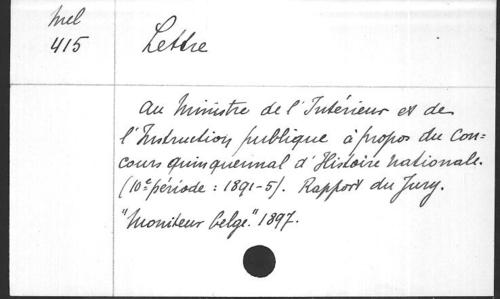 Mel
415
Lettre
au Ministre de l'Intérieur et de
l'Instruction publique à propos du Con=
cours quinquennal d'Histoire nationale.
(10e période : 1891-5). Rapport du Jury.
"Moniteur belge." 1897.